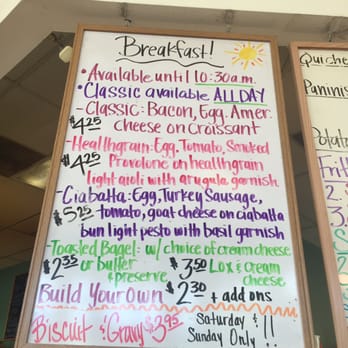 Breakfast!
• Available until 10:30 a.m.
• Classic available ALL DAY
- Classic: Bacon, Egg, Amer.
$4.25 cheese on Croissant
- Healthgrain: Egg, Tomato, Smoked
$4.25 Provolone on healthgrain
light aioli with arugula garnish
- Ciabatta: Egg, Turkey Sausage,
$5.25 tomato, goat cheese on ciabatta
bun light pesto with basil garnish
- Toasted Bagel: w/ choice of cream cheese
$2.35 or butter & preserve $3.50 Lox & cream cheese
Build Your Own $2.30 + add ons
Biscuit & Gravy $3.95 Saturday & Sunday Only!!
Quiche
Paninis